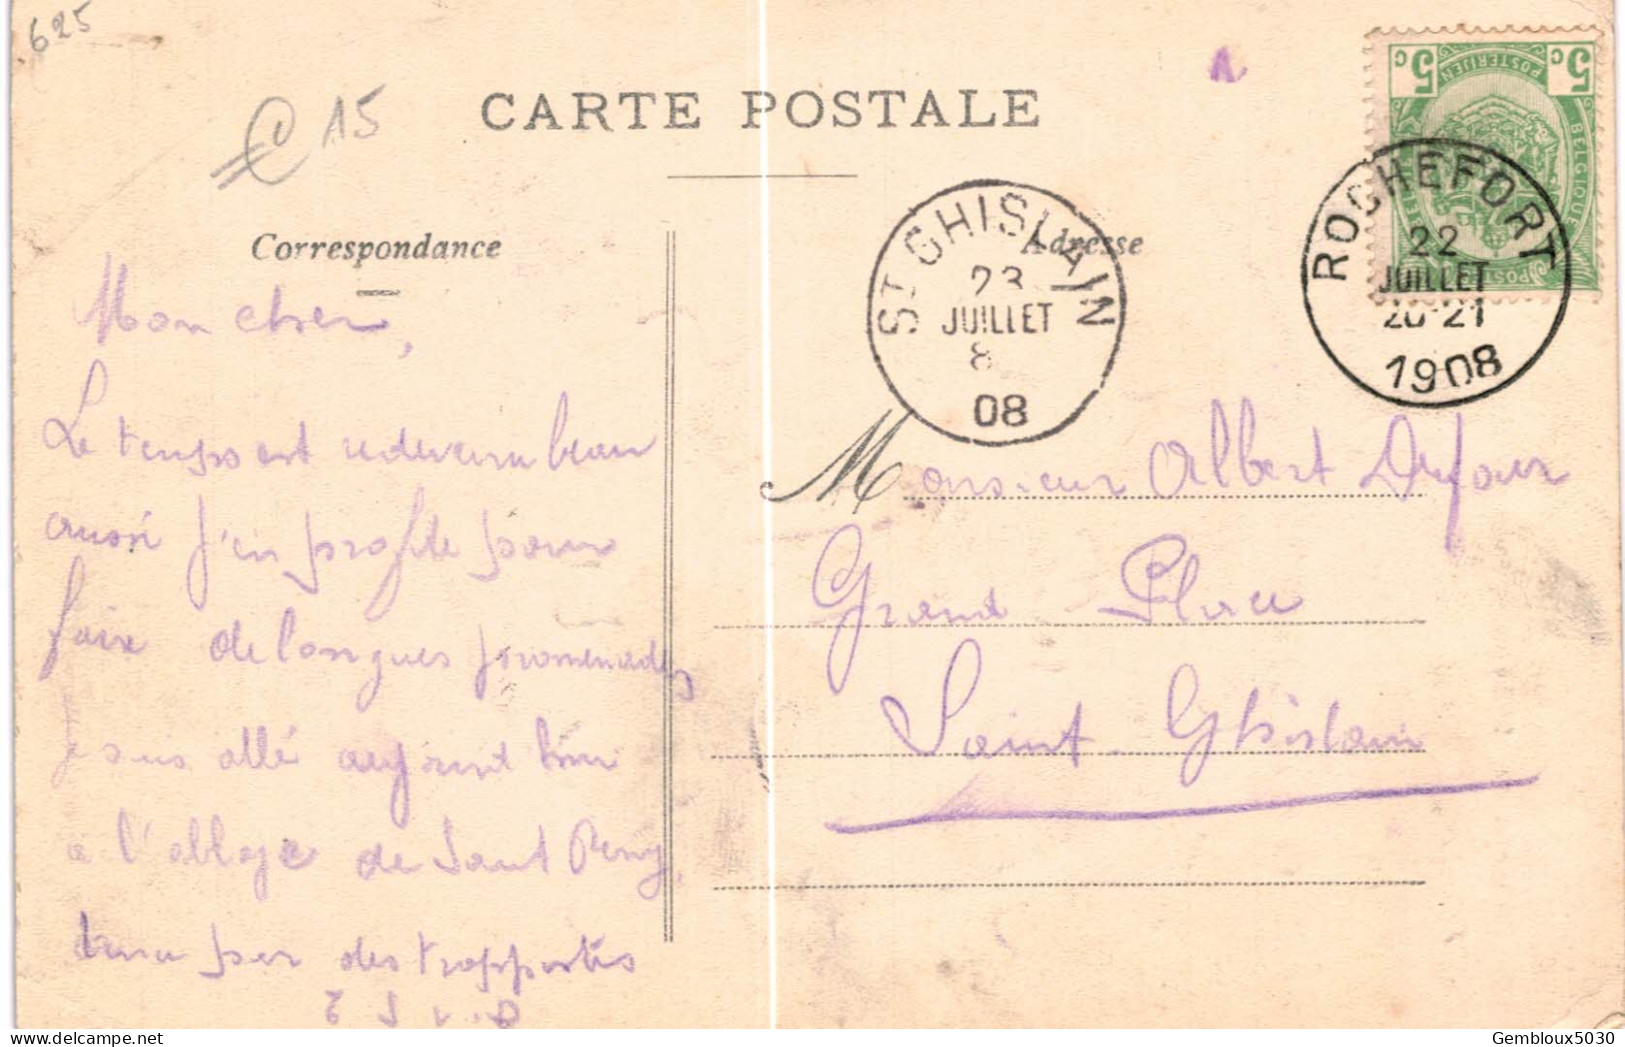 625
€ 15
CARTE POSTALE
5c 5c
POSTERIJEN
BELGIQUE
ROCHEFORT
22
JUILLET
20-21
1908
ST GHISLAIN
23
JUILLET
8
08
Correspondance
Adresse
Mon cher,
Le temps est redevenu beau
aussi j'en profite pour
faire de longues promenades
je suis allé
à l'abbaye de Saint Remy,
tenu par des trappistes
Monsieur Albert Dufour
Grand Place
Saint-Ghislain
Gembloux5030